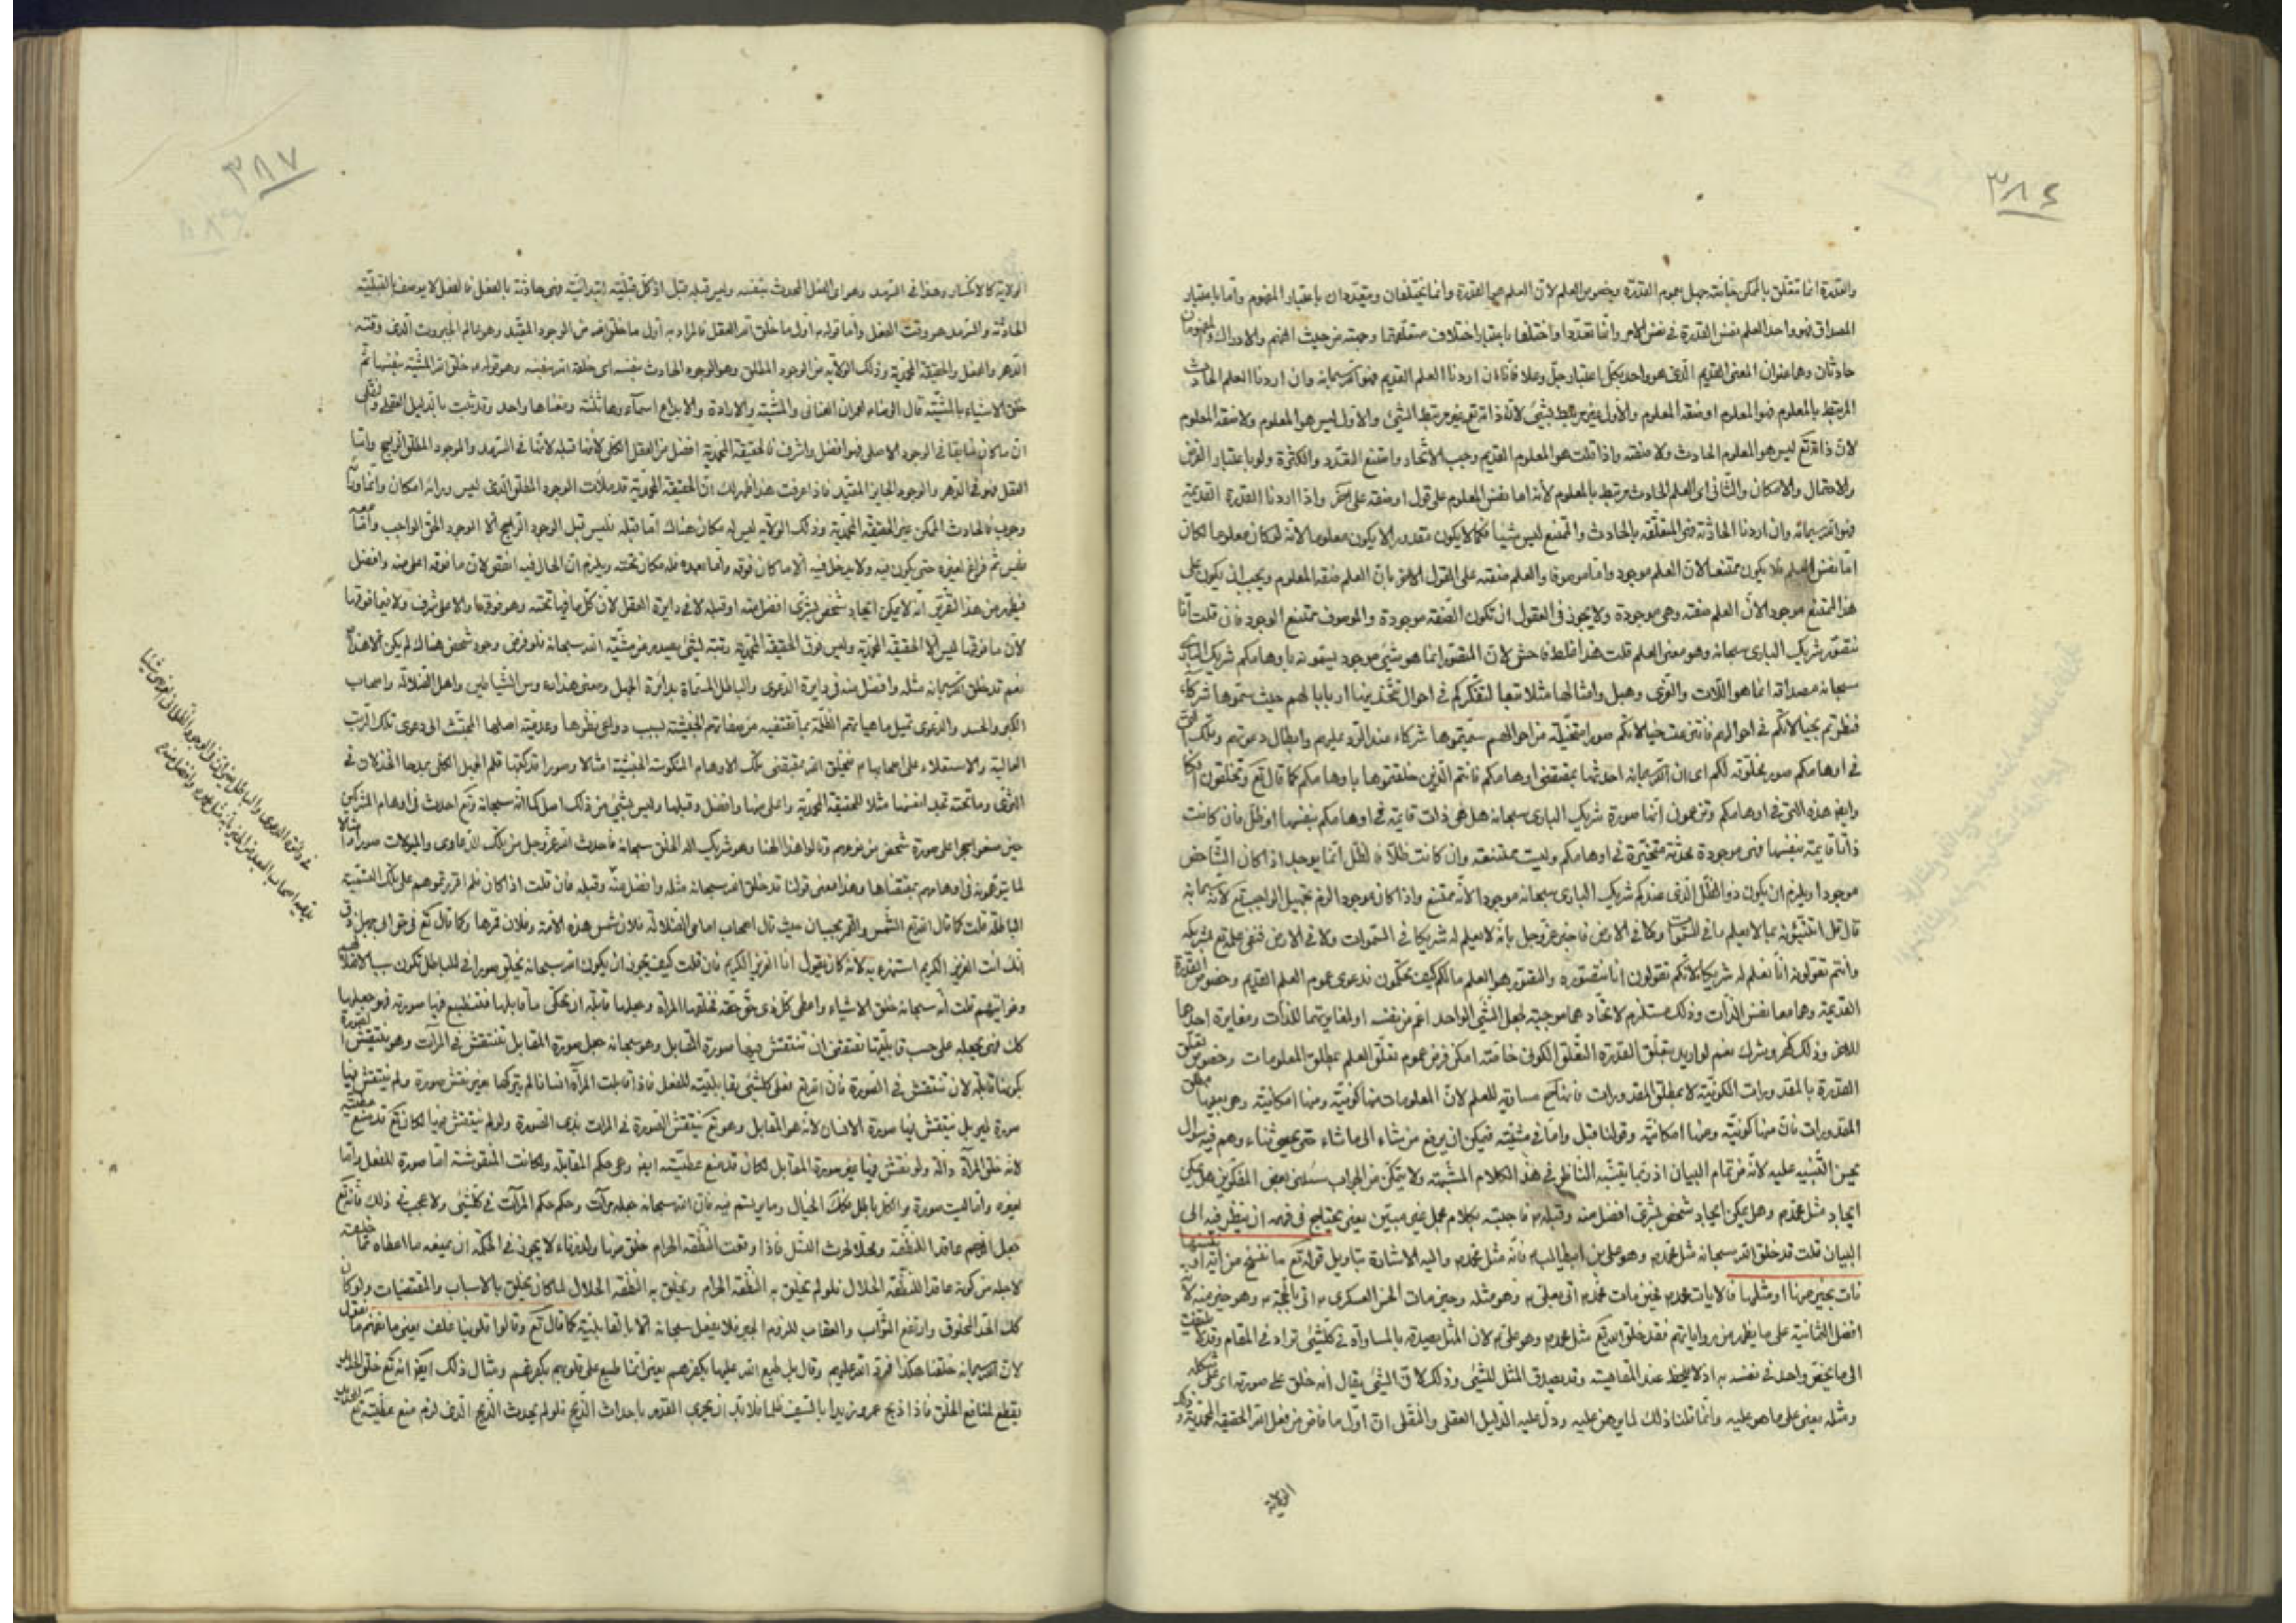 ٣٨٤
والقدرة انما تتعلق بالممكن خاصة جهل بعموم القدرة وخصوص العلم لان العلم عين القدرة وانما يختلفان ويتعددان باعتبار المفهوم واما باعتبار
المصداق فهو واحد العلم نفس القدرة في نفس الامر وانما تعددا واختلفا باعتبار اختلاف متعلقهما وجهته من حيث الفهم والادراك والمفهومان
حادثان وهما عنوان المعنى القديم الذي هو واحد بكل اعتبار جل وعلا فانا ان اردنا العلم القديم فهو الله سبحانه وان اردنا العلم الحادث
المرتبط بالمعلوم فهو المعلوم او صفة المعلوم والاول غير مرتبط بشيء لانه ذات الله تع غير مرتبط بشيء والاول ليس هو المعلوم ولا صفة المعلوم
لان ذات الله تع ليس هو المعلوم الحادث ولا صفته واذا قلت هو المعلوم القديم وجب الاتحاد وامتنع التعدد والكثرة ولو باعتبار الفرض
والاحتمال والامكان والثاني اي العلم الحادث مرتبط بالمعلوم لانه اما نفس المعلوم على قول او صفته على اخر واذا اردنا القدرة القديمة
فهو الله سبحانه وان اردنا الحادثة فهي المتعلقة بالحادث والممتنع ليس شيئا فكما لا يكون مقدورا لا يكون معلوما لانه لو كان معلوما لكان
اما نفس العلم فلا يكون ممتنعا لان العلم موجود واما موصوفا والعلم صفته على القول الاخر بان العلم صفة المعلوم ويجب ان يكون على
هذا الممتنع موجودا لان العلم صفته وهي موجودة ولا يجوز في العقول ان تكون الصفة موجودة والموصوف ممتنع الوجود فان قلت انا
نتصور شريك الباري سبحانه وهو معنى العلم قلت هذا غلط فاحش لان المتصور انما هو شيء موجود سميتموه باوهامكم شريك الباري
سبحانه مصداقه انما هو اللات والعزى وهبل وامثالها مثلا تبعا لتفكركم في احوال متخذيها اربابا لهم حيث سموها شركاء
فنظرتم بخيالاتكم في احوالهم فانتزعت خيالاتكم صورا متخيلة من احوالهم سميتموها شركاء عند الرد عليهم وابطال دعوتهم وتلك التي
في اوهامكم صور مخلوقة لكم اي ان الله سبحانه احدثها بمقتضى اوهامكم فانتم الذين خلقتموها باوهامكم كما قال تع وتخلقون افكا
وايضا هذه التي في اوهامكم وتزعمون انها صورة شريك الباري سبحانه هل هي ذات قائمة في اوهامكم بنفسها او ظل فان كانت
ذاتا قائمة بنفسها فهي موجودة محدثة متحيزة في اوهامكم وليست ممتنعة وان كانت ظلا فالظل انما يوجد اذا كان الشاخص
موجودا ويلزم ان يكون ذو الظل الذي عندكم شريك الباري سبحانه موجودا لانه ممتنع واذا كان موجودا لزم تجهيل الواجب تع لانه سبحانه
قال قل اتنبئونه بما لا يعلم ما في السموات ولا في الارض فاخبر عز وجل بانه لا يعلم له شريكا في السموات ولا في الارض فنفى علمه تع بشريكه
وانتم تقولون انا نعلم له شريكا لانكم تقولون انا نتصوره والتصور هو العلم ما لكم كيف تحكمون فدعوى عموم العلم القديم وخصوص القدرة
القديمة وهما معا نفس الذات وذلك مستلزم لاتحادهما موجبة لجعل الشيء الواحد اعم من نفسه او لمغايرتهما للذات ومغايرة احدهما
للاخر وذلك كفر وشرك نعم لو اريد بتعلق القدرة التعلق الكوني خاصة امكن فرض عموم تعلق العلم بمطلق المعلومات وخصوص تعلق
القدرة بالمقدورات الكونية لا بمطلق المقدورات فانها ح مساوية للعلم لان المعلومات منها كونية ومنها امكانية وهي بعينها مطلق
المقدورات فان منها كونية ومنها امكانية وقولنا قبل واما في مشيته فيمكن ان يرفع من شاء الى ما شاء حتى يحصى ثناء وهم فيه سؤال
يحسن التنبيه عليه لانه من تمام البيان اذ ربما يتنبه الناظر في هذا الكلام المشبهة ولا يتمكن من الجواب سئلني بعض المفكرين هل يمكن
ايجاد مثل محمد ص وهل يمكن ايجاد شخص بشري افضل منه وقبله ص فاجبته بكلام مجمل غير مبين يعني يحتاج في فهمه ان ينظر فيه الى
البيان قلت قد خلق الله سبحانه مثل محمد ص وهو علي بن ابيطالب ع فانه مثل محمد ص واليه الاشارة بتاويل قوله تع ما ننسخ من اية او ننسها
نات بخير منها او مثلها فالايات محمد ص فحين مات محمد ص اتى بعلي ع وهو مثله وحين مات الحسن العسكري ع اتى بالحجة ع وهو خير منه لانه
افضل الثمانية على ما يظهر من رواياتهم فقد خلق الله تع مثل محمد ص وهو علي ع لان المثل يصدق بالمساواة في كل شيء تراد في المقام وقد يلتفت
الى ما يختص واحد في نفسه به اذ لا يلحظ عند المقايسة وقد يصدق المثل للشيء وذلك لان الشيء يقال انه خلق على صورته اي على شكله
ومثله يعني على ما هو عليه وانما قلنا ذلك لما برهن عليه ودل عليه الدليل العقلي والنقلي ان اول ما فاض من فعل الله الحقيقة المحمدية وذلك
الولاية
٣٨٧
الولاية كالانكسار وهذا في السرمد وهو اي الفعل المحدث بنفسه وليس قبله قبل اذ كل قبلية ابتدائية فهي حادثة بالفعل فالفعل لا يوصف بالقبلية
الحادثة والسرمد هو وقت الفعل واما قوله ص اول ما خلق الله العقل فالمراد به اول ما خلق الله من الوجود المقيد وهو عالم الجبروت الذي وقته
الدهر والفعل والحقيقة المحمدية وذلك الولاية من الوجود المطلق وهو الوجود الحادث بنفسه اي خلقه الله بنفسه وهو قوله ع خلق الله المشية بنفسها ثم
خلق الاشياء بالمشية قال الرضا ع لعمران الصابي والمشية والارادة والابداع اسماؤها ثلثة ومعناها واحد وقد ثبت بالدليل العقلي والنقلي
ان ما كان سابقا في الوجود الاصلي فهو افضل واشرف فالحقيقة المحمدية افضل من العقل الكلي لانها قبله لانها في السرمد والوجود المطلق الراجح واما
العقل فهو في الدهر والوجود الجايز المقيد فاذا عرفت هذا ظهر لك ان الحقيقة المحمدية قد ملأت الوجود المطلق الذي ليس ورائه امكان وانما وراءه
وجوب فالحادث الممكن غير الحقيقة المحمدية وذلك الولاية ليس له مكان هناك اما قبله فليس قبل الوجود الراجح الا الوجود الحق الواجب واما معه
فليس ثم فراغ لغيره حتى يكون فيه ولا يدخل فيه الا ما كان فوقه واما بعده فله مكان تحته ويلزم ان الحال فيه انقص لان ما فوقه اعلى منه وافضل
فيظهر من هذا التقرير انه لا يمكن ايجاد شخص بشري افضل منه او قبله لا في دايرة العقل لان كل ما فيها تحته وهو فوقها والاعلى اشرف ولا فيما فوقها
لان ما فوقها ليس الا الحقيقة المحمدية وليس فوق الحقيقة المحمدية رتبة لشيء يصدر من مشية الله سبحانه فلو فرض وجود شخص هناك لم يكن الا هذا
نعم قد خلق الله سبحانه مثله وافضل منه في دايرة الدعوى والباطل المسماة بدائرة الجهل ومعنى هذا ان رؤس الشياطين واهل الضلالة واصحاب
الكبر والحسد والدعوى تميل ماهياتهم الظلمة بما تقتضيه من صفاتهم الخبيثة بسبب دواعي نظرها وعدمية اصلها المجتث الى دعوى تلك الرتب
العالية والاستعلاء على اصحابها ع فيخلق الله بمقتضى تلك الاوهام المنكوسة الخبيثة امثالا وصورا تدركها قلم الجهل الكلي بمدها الخذلان في
الثرى وما تحته تعد انفسها مثلا للحقيقة المحمدية واعلى منها وافضل وقبلها وليس بشيء من ذلك اصل كما انه سبحانه وتع احدث في اوهام المشركين
حين صنعوا حجرا على صورة شخص من نوعهم وقالوا هذا الهنا وهو شريك الله الخلق سبحانه فاحدث الله عز وجل من تلك الدعاوى والميولات صورا وامثالا
لما توهموه في اوهامهم بمقتضاها وهذا معنى قولنا قد خلق الله سبحانه مثله وافضل منه وقبله فان قلت اذا كان فلم اقررتموهم على تلك التسمية
الباطلة قلت كما قال الله تع الشمس والقمر بحسبان حيث قال اصحاب امامي الضلالة فلان شمس هذه الامة وفلان قمرها وكما قال تع في حق ابي جهل ذق
انك انت العزيز الكريم استهزء به لانه كان يقول انا العزيز الكريم فان قلت كيف يجوز ان يكون الله سبحانه يخلق صورا في للباطل تكون سببا لاضلالهم
وغوايتهم قلت انه سبحانه خلق الاشياء واعطى كل ذي حق حقه فخلق مثلا المرآة وجعلها قابلة ان تحكي ما قابلها فتنطبع فيها صورته فهو جعلها
كك فهي بجعله على حسب قابليتها تقتضي ان تنتقش فيها صورة المقابل وهو سبحانه جعل صورة المقابل تنتقش في المرآت وهو ينتقش الصورة
بكونها قابلة لان تنتقش في الصورة فان الله تع يعطي كل شيء بقابليته للفعل فاذا قابلت المرآة انسانا لم يتركها بغير نقش صورة ولم ينتقش فيها
صورة طير بل ينتقش فيها صورة الانسان لانه هو المقابل وهو تع ينتقش الصورة في المرات بذي الصورة ولو لم ينتقش فيها لكان تع قد منع عطيته
لانه خلق المرآة دالة ولو نقش فيها غير صورة المقابل لكان قد منع عطيته ايضا وهي حكم المقابلة ولكانت المنقوشة اما صورة للفعل واما
لغيره واما ليست صورة والكل باطل فكك الخيال وما يرتسم فيه فان الله سبحانه جعله مرآت وحكم حكم المرآت في كل شيء ولا عجب في ذلك فانه تع
جعل الرحم عاقدا للنطفة ومحلا لحرث النسل فاذا وقعت النطفة الحرام خلق منها ولد زناء لا يجوز في الحكمة ان يمنعه ما اعطاه مما خلقه
لاجله من كونه عاقدا للنطفة الحلال فلو لم يخلق به النطفة الحرام ويخلق به النطفة الحلال لما كان يخلق بالاسباب والمقتضيات ولو كان
كك لاتحد المخلوق وارتفع الثواب والعقاب للزوم الجبر فلا يفعل سبحانه الا بالقابلية كما قال تع وقالوا قلوبنا غلف يعني ما نفهم ما تقول
لان الله سبحانه خلقنا هكذا فرد الله عليهم وقال بل طبع الله عليها بكفرهم يعني انما طبع على قلوبهم بكفرهم ومثال ذلك ايضا انه تع خلق الحديد
يقطع لمنافع الخلق فاذا ذبح عمرو زيدا بالسيف ظلما فلا بد ان يجري القدر باحداث الذبح فلو لم يحدث الذبح الذي لزم منع عطيته تع للحديد